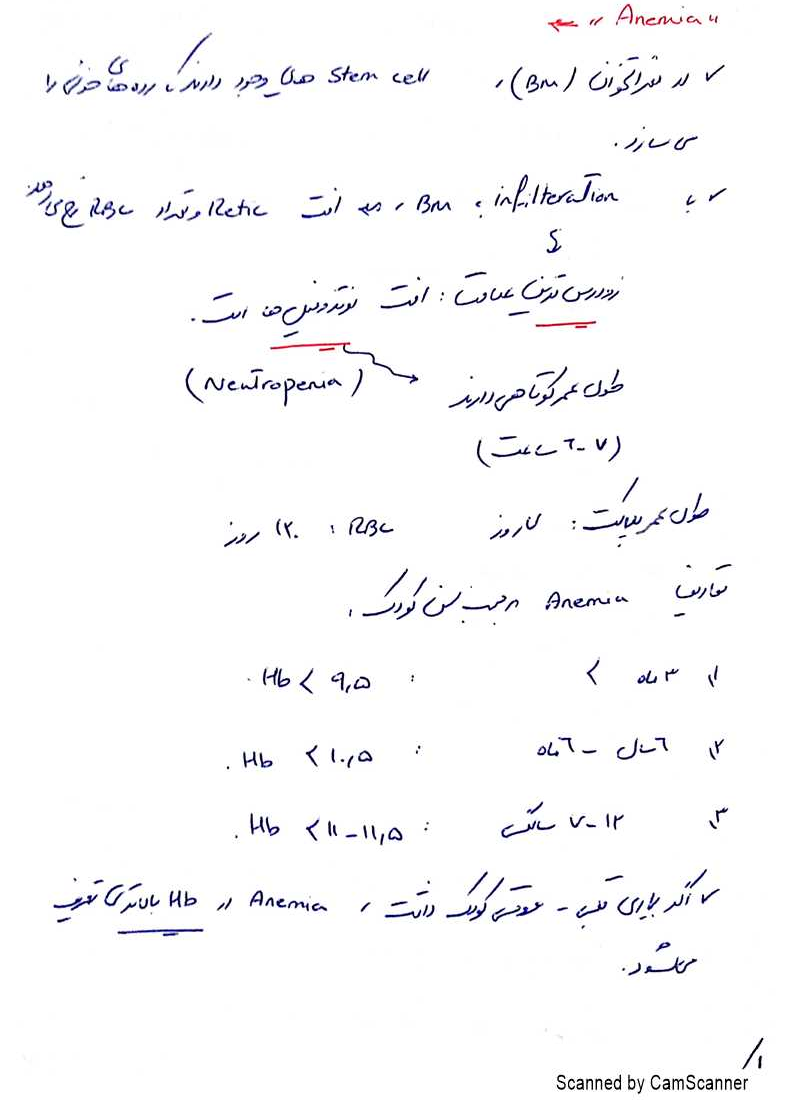 " Anemia " ←
✓ در مغز استخوان (BM)، Stem cell هایی وجود دارند که رده های خونی را
می سازد.
✓ با infilteration، BM، افت Retic و تعداد RBC رخ می دهد
زودرس ترین علامت : افت نوتروفیل ها است.
(Neutropenia) طول عمر کوتاهی دارند
(۶-۷ ساعت)
طول عمر پلاکت : ۷ روز RBC : ۱۲۰ روز
تعاریف Anemia برحسب سن کودک :
۱) ۳ ماه > : Hb < ۹,۵ .
۲) ۶ ماه - ۶ سال : Hb < ۱۰,۵ .
۳) ۷-۱۲ سالگی : Hb < ۱۱-۱۱,۵ .
✓ اگر بیماری قلبی - عروقی کودک داشت ، Anemia در Hb بالاتری تعریف
میشود.
۱/
Scanned by CamScanner